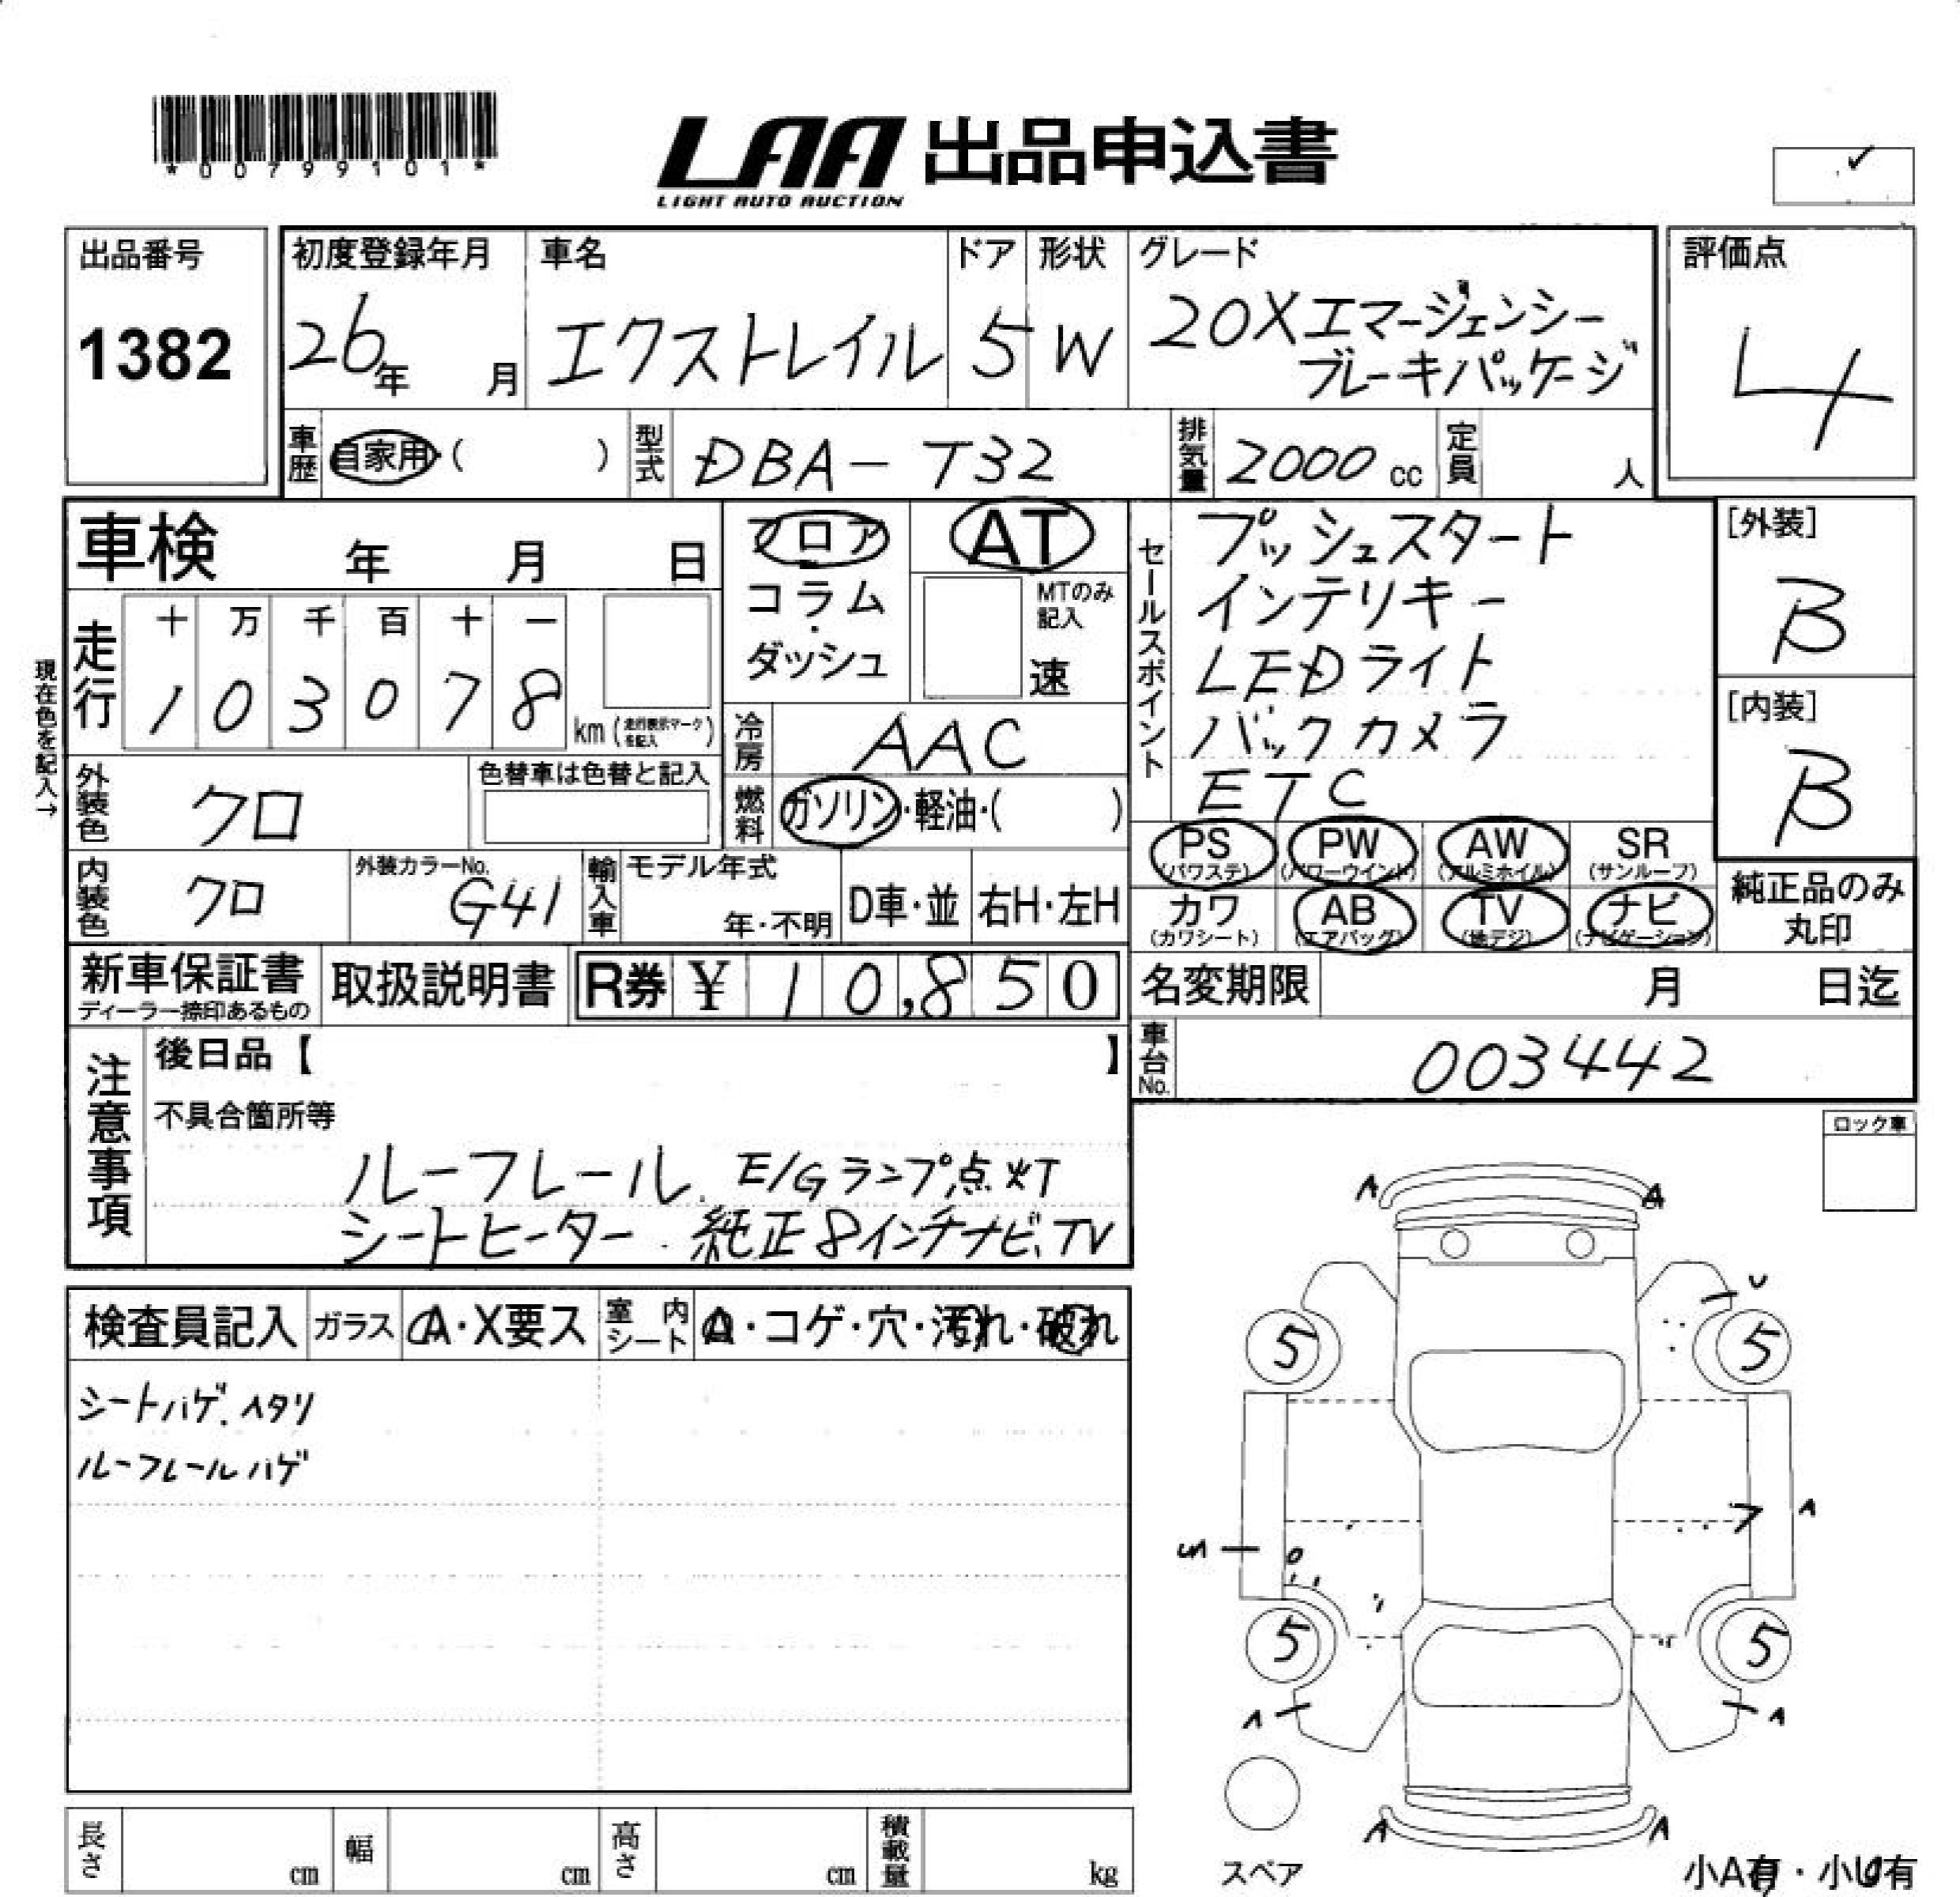 *00799101*
LAA 出品申込書
LIGHT AUTO AUCTION
✓
出品番号
1382
初度登録年月
26年 月
車名
エクストレイル
ドア
5
形状
W
グレード
20Xエマージェンシー
ブレーキパッケージ
評価点
4
車歴 自家用・( )
型式 DBA-T32
排気量 2000 cc
定員 人
車検 年 月 日
フロア
コラム
・
ダッシュ
AT
MTのみ
記入
速
セールスポイント
プッシュスタート
インテリキー
LEDライト
バックカメラ
ETC
[外装]
B
[内装]
B
現在色を記入→
走行
十 万 千 百 十 一
1 0 3 0 7 8
km (走行表示マークを記入)
冷房 AAC
外装色 クロ
色替車は色替と記入
燃料 ガソリン・軽油・( )
PS (パワステ)
PW (パワーウインド)
AW (アルミホイル)
SR (サンルーフ)
カワ (カワシート)
AB (エアバッグ)
TV (地デジ)
ナビ (ナビゲーション)
純正品のみ
丸印
内装色 クロ
外装カラーNo.
G41
輸入車
モデル年式
年・不明
D車・並
右H・左H
新車保証書
ディーラー捺印あるもの
取扱説明書
R券 ¥ 10,850
名変期限 月 日迄
車台No. 003442
注意事項
後日品【 】
不具合箇所等
ルーフレール. E/Gランプ点灯
シートヒーター. 純正8インチナビ、TV
ロック車
検査員記入
ガラス A・X要ス
室内シート A・コゲ・穴・汚れ・破れ
シートハゲ. ヘタリ
ルーフレールハゲ
A A
U
5 5
A
S
5 5
A A
A A
スペア
長さ cm
幅 cm
高さ cm
積載量 kg
小A有・小U有